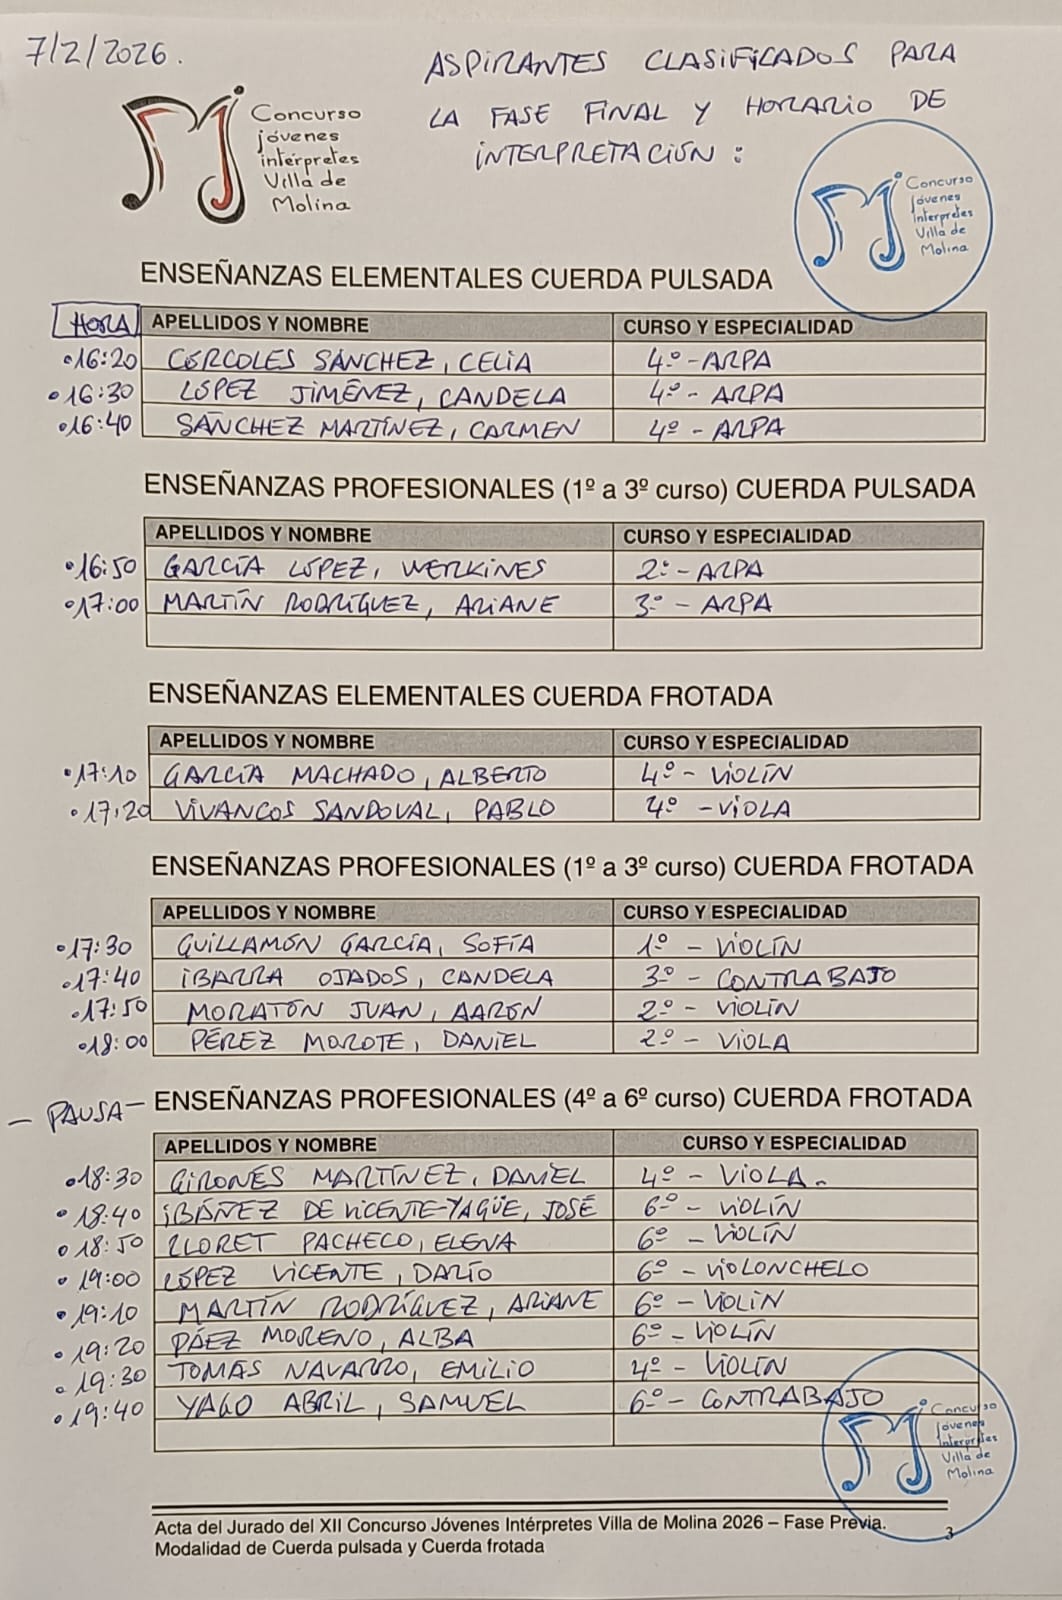 7/2/2026.
ASPIRANTES CLASIFICADOS PARA
LA FASE FINAL Y HORARIO DE
INTERPRETACIÓN:
Concurso
jóvenes
intérpretes
Villa de
Molina
Concurso
Jóvenes
Intérpretes
Villa de
Molina
ENSEÑANZAS ELEMENTALES CUERDA PULSADA
HORA APELLIDOS Y NOMBRE CURSO Y ESPECIALIDAD
16:20 CÉRCOLES SÁNCHEZ, CELIA 4º - ARPA
16:30 LÓPEZ JIMÉNEZ, CANDELA 4º - ARPA
16:40 SÁNCHEZ MARTÍNEZ, CARMEN 4º - ARPA
ENSEÑANZAS PROFESIONALES (1º a 3º curso) CUERDA PULSADA
APELLIDOS Y NOMBRE CURSO Y ESPECIALIDAD
16:50 GARCÍA LÓPEZ, WERKINES 2º - ARPA
17:00 MARTÍN RODRÍGUEZ, ARIANE 3º - ARPA
ENSEÑANZAS ELEMENTALES CUERDA FROTADA
APELLIDOS Y NOMBRE CURSO Y ESPECIALIDAD
17:10 GARCÍA MACHADO, ALBERTO 4º - VIOLÍN
17:20 VIVANCOS SANDOVAL, PABLO 4º - VIOLA
ENSEÑANZAS PROFESIONALES (1º a 3º curso) CUERDA FROTADA
APELLIDOS Y NOMBRE CURSO Y ESPECIALIDAD
17:30 GUILLAMÓN GARCÍA, SOFÍA 1º - VIOLÍN
17:40 IBARRA OJADOS, CANDELA 3º - CONTRABAJO
17:50 MORATÓN JUAN, AARÓN 2º - VIOLÍN
18:00 PÉREZ MOROTE, DANIEL 2º - VIOLA
- PAUSA - ENSEÑANZAS PROFESIONALES (4º a 6º curso) CUERDA FROTADA
APELLIDOS Y NOMBRE CURSO Y ESPECIALIDAD
18:30 GIRONÉS MARTÍNEZ, DANIEL 4º - VIOLA.
18:40 IBÁÑEZ DE VICENTE-YAGÜE, JOSÉ 6º - VIOLÍN
18:50 LLORET PACHECO, ELENA 6º - VIOLÍN
19:00 LÓPEZ VICENTE, DARÍO 6º - VIOLONCHELO
19:10 MARTÍN RODRÍGUEZ, ARIANE 6º - VIOLÍN
19:20 PÁEZ MORENO, ALBA 6º - VIOLÍN
19:30 TOMÁS NAVARRO, EMILIO 4º - VIOLÍN
19:40 YAGO ABRIL, SAMUEL 6º - CONTRABAJO
Concurso
Jóvenes
Intérpretes
Villa de
Molina
Acta del Jurado del XII Concurso Jóvenes Intérpretes Villa de Molina 2026 – Fase Previa.
Modalidad de Cuerda pulsada y Cuerda frotada
3